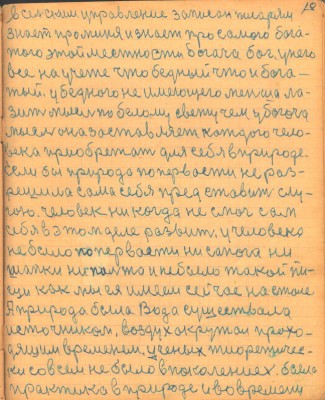 18
в сельский управление записан писарем
знает про меня и знает про самого бога-
того этой местности богача бог, у него
все на учете что бедный что и бога-
тый. у бедного не имеющего меньша ла-
зит мысль по белому свету чем у богоча
мысль она заставляет каждого чело-
века приобретат для себя в природе.
Если бы природа по первости не раз-
решила сама себя представит слу-
гою. человек никогда не смог сам
себя в этом деле развит. у человека
не было по первости ни сапога ни
шапки ни польто и не было такой пи-
щи как мы ея имеем сейчас на столе
А природа была вода существала
источником, воздух окрутом прохо-
дящим временем. ученых тиоретичес-
ки совсем не было в поколениях. была
практика в природе и во времени